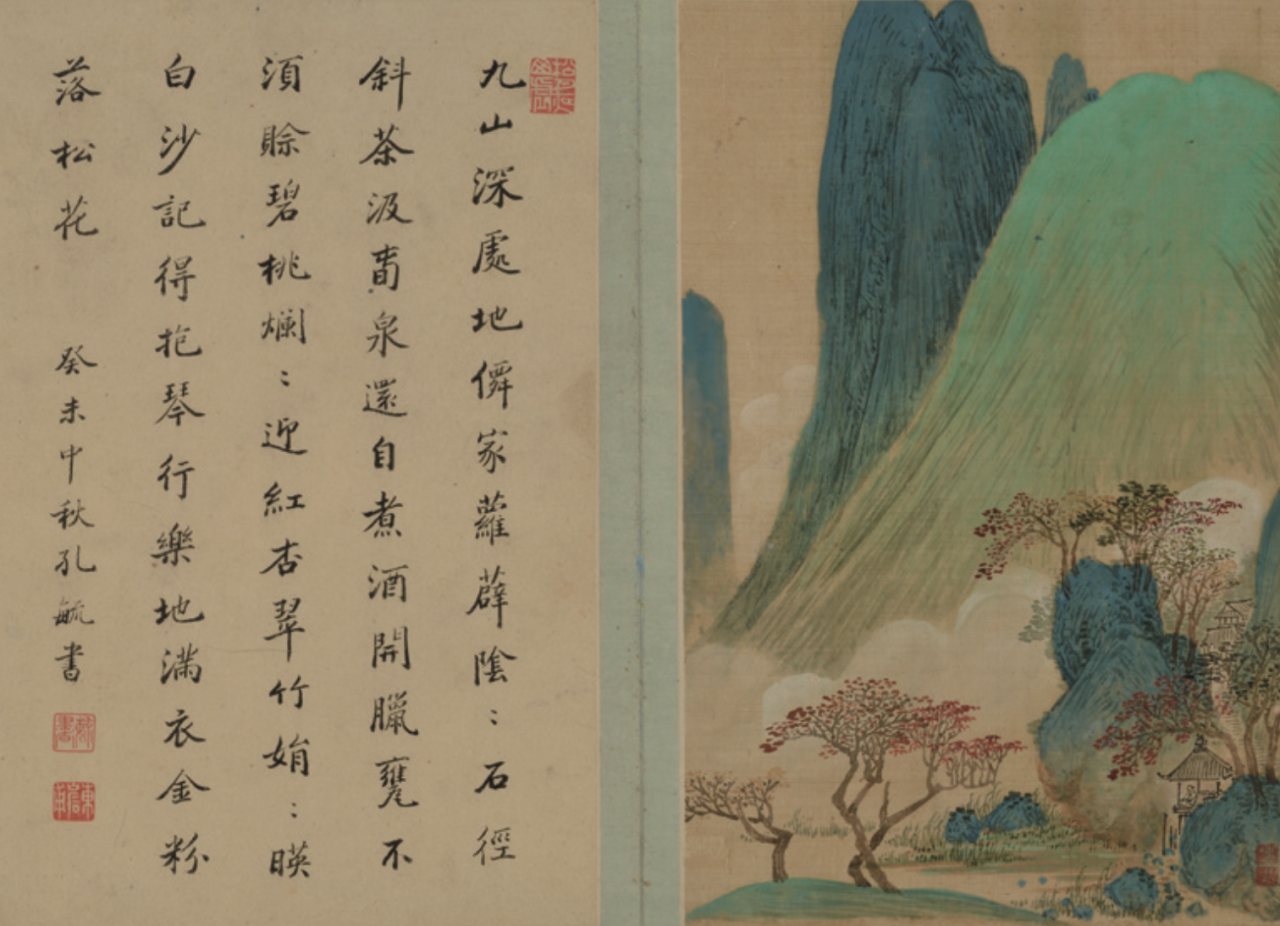 九山深處地僻家蘿薜陰：石徑
斜茶汲畨泉還自煮酒開臘甕不
須賒碧桃爛：迎紅杏翠竹娟：暎
白沙記得抱琴行樂地滿衣金粉
落松花
癸未中秋孔毓書